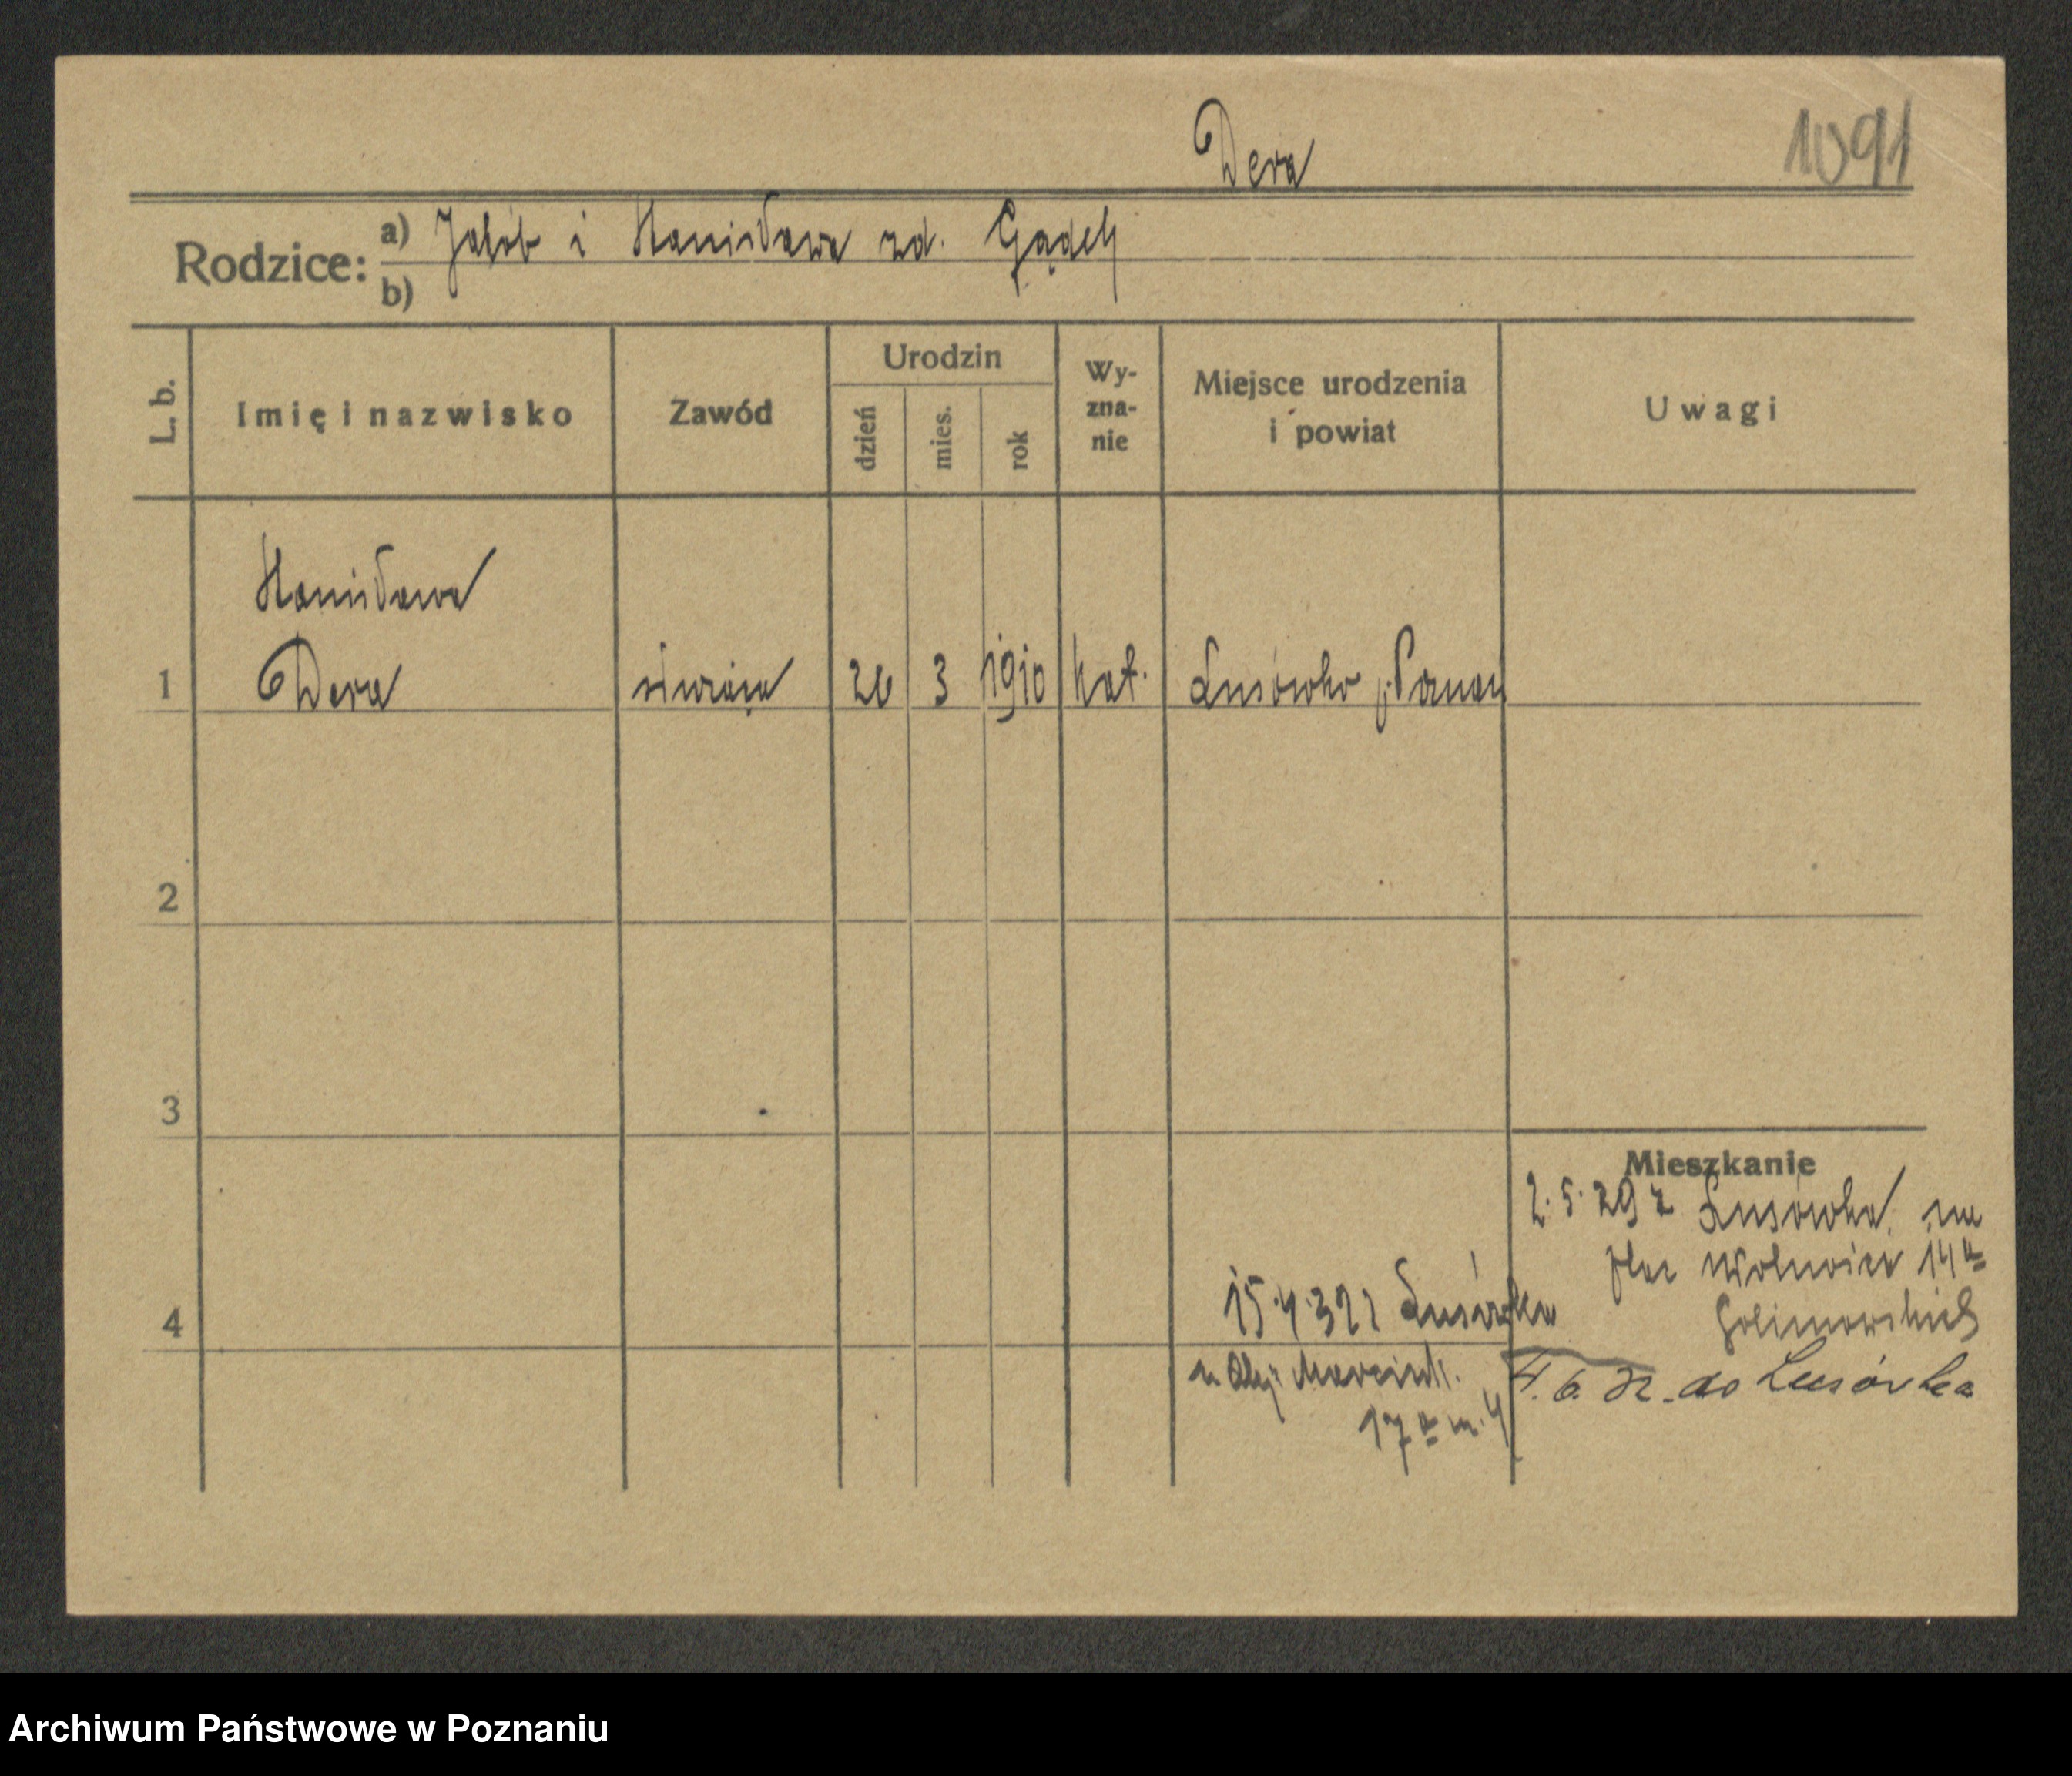 Dera
1091
Rodzice: a) Jakób i Stanisława zd. Gądek
b)
L. b.
Imię i nazwisko
Zawód
Urodzin
dzień
mies.
rok
Wy-
zna-
nie
Miejsce urodzenia
i powiat
Uwagi
Stanisława
1 Dera służąca 26 3 1910 kat. Lusówko p. Poznań
2
3
Mieszkanie
2.5.29 z Lusówka na
Plac Wolności 14a
15.4.32 z Lusówka
4
n Alej. Marcink.
17a m. 4
4.6.32. do Lusówka
Archiwum Państwowe w Poznaniu